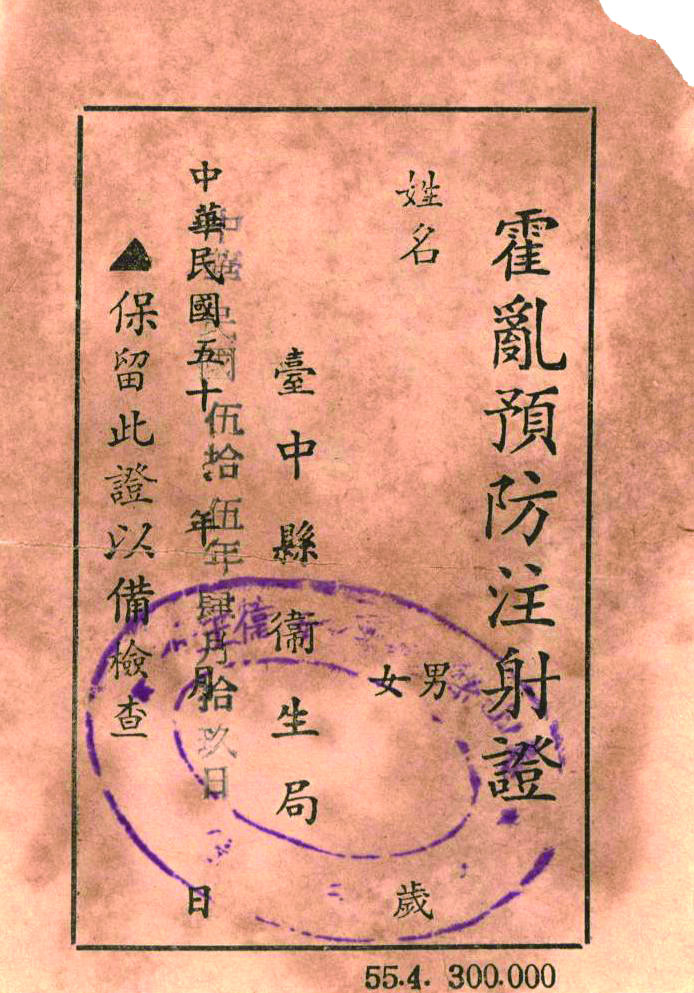 霍亂預防注射證
姓名
男
女
歲
臺中縣衛生局
中華民國五十 年 月 日
中華民國伍拾伍年肆月拾玖日
▲保留此證以備檢查
55.4. 300.000